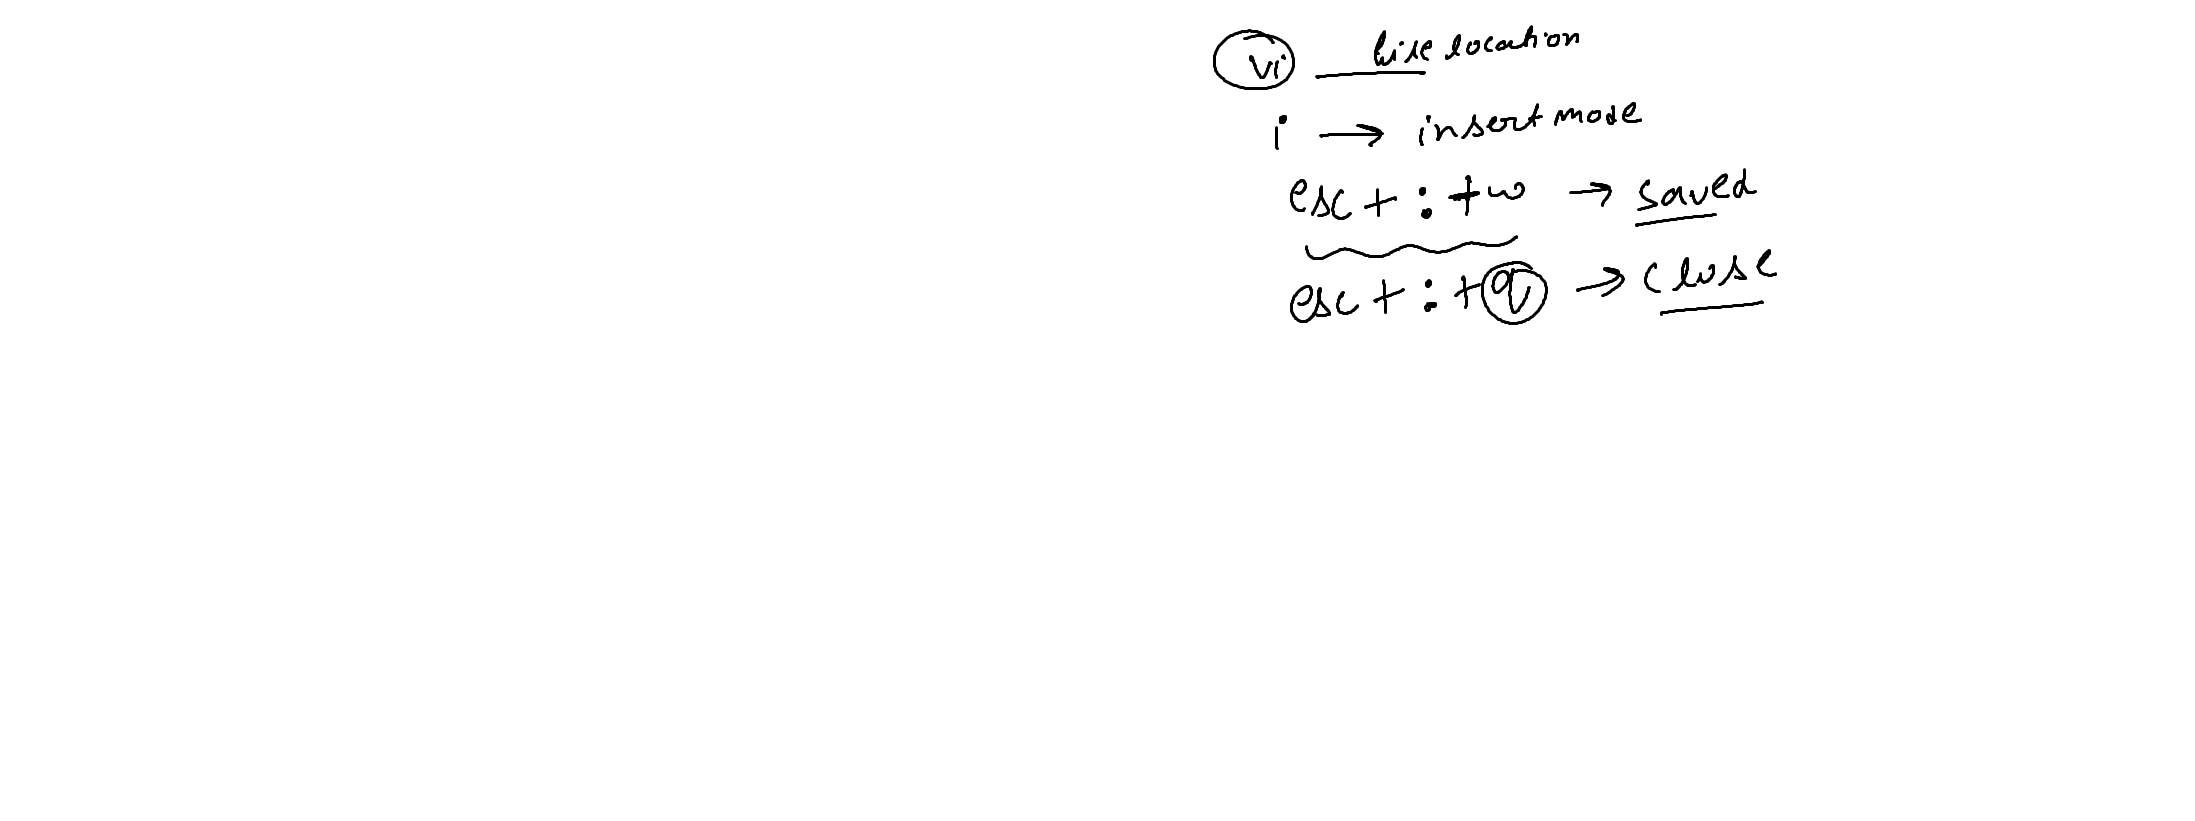 vi ____ file location
i → insert mode
esc + : + w → saved
esc + : + q → close